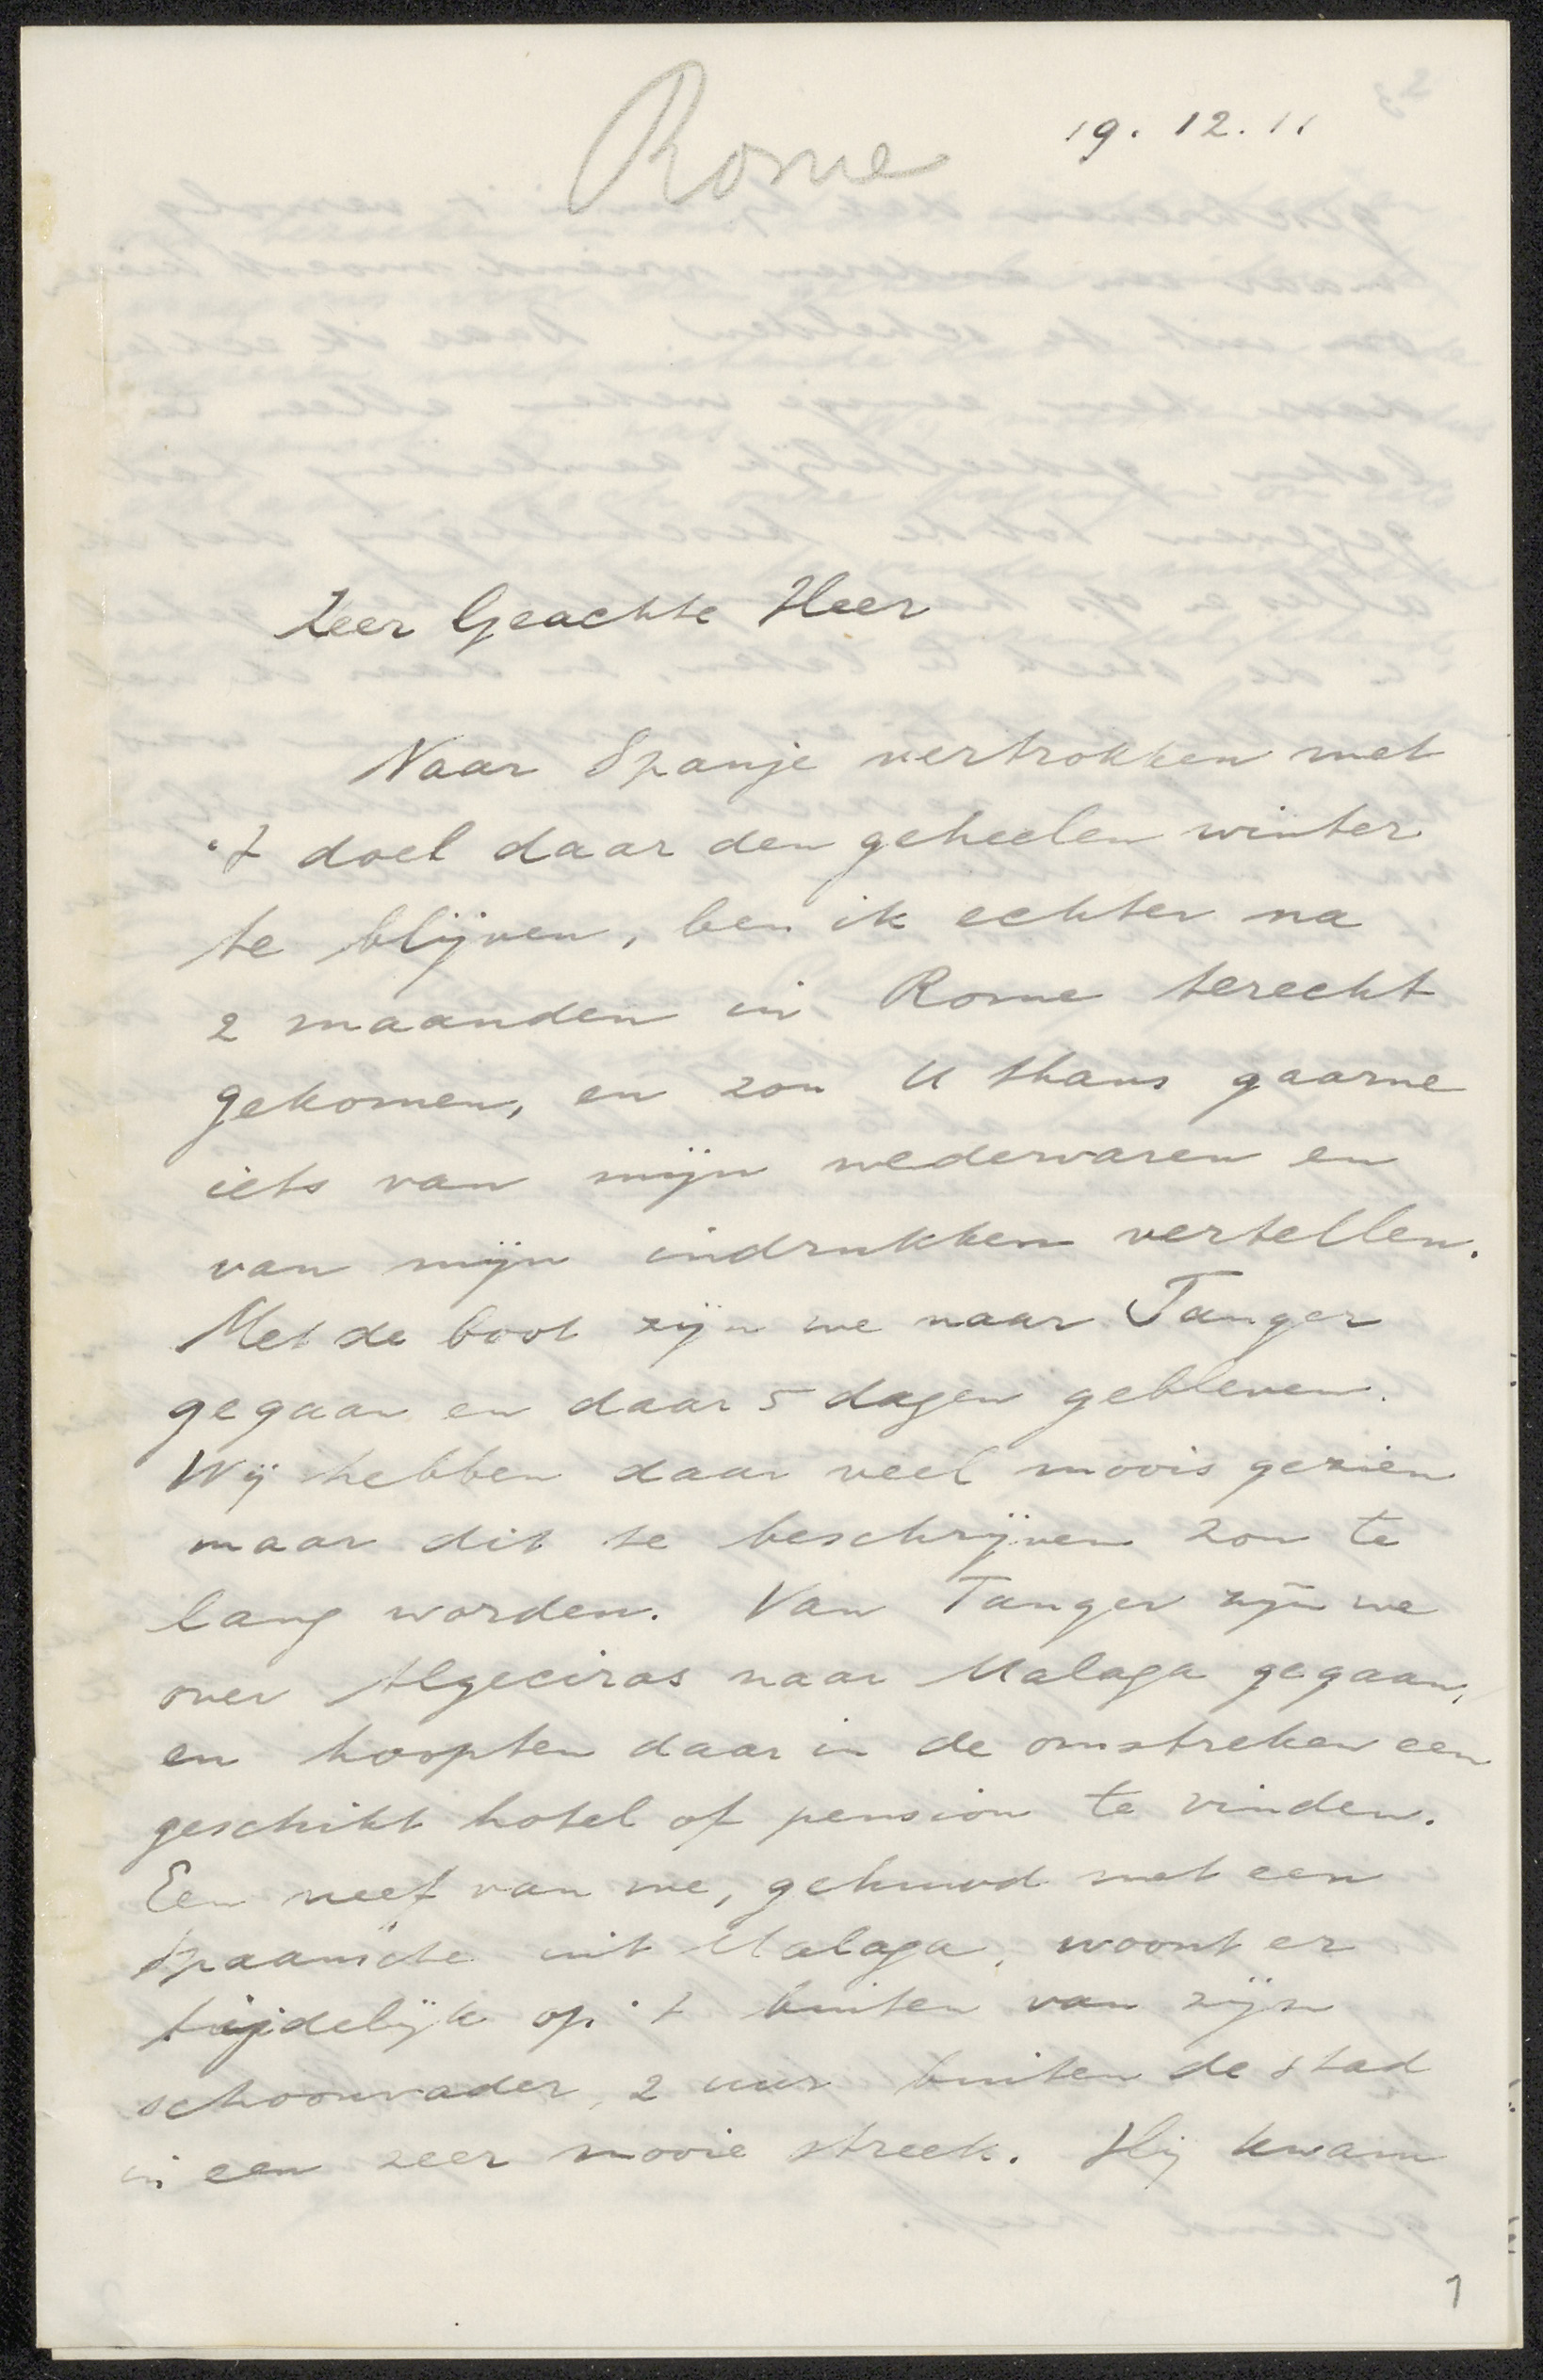 Rome
19.12.11
Zeer Geachte Heer
Naar Spanje vertrokken met
't doel daar den geheelen winter
te blijven, ben ik echter na
2 maanden in Rome terecht
gekomen, en zou U thans gaarne
iets van mijn wedervaren en
van mijn indrukken vertellen.
Met de boot zijn we naar Tanger
gegaan en daar 5 dagen gebleven.
Wij hebben daar veel moois gezien
maar dit te beschrijven zou te
lang worden. Van Tanger zijn we
over Algeciras naar Malaga gegaan,
en hoopten daar in de omstreken een
geschikt hotel of pension te vinden.
Een neef van me, gehuwd met een
Spaansche uit Malaga, woont er
tijdelijk op 't buiten van zijn
schoonvader, 2 uur buiten de stad
in een zeer mooie streek. Hij kwam
1